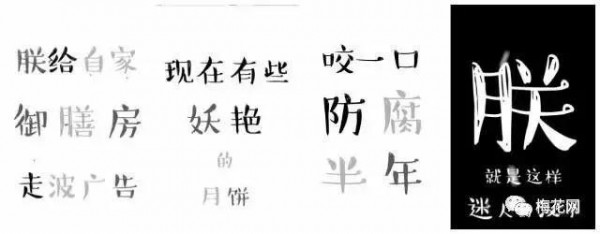 朕给自家
御膳房
走波广告
现在有些
妖艳
的
月饼
咬一口
防腐
半年
朕
就是这样
迷人
梅花网